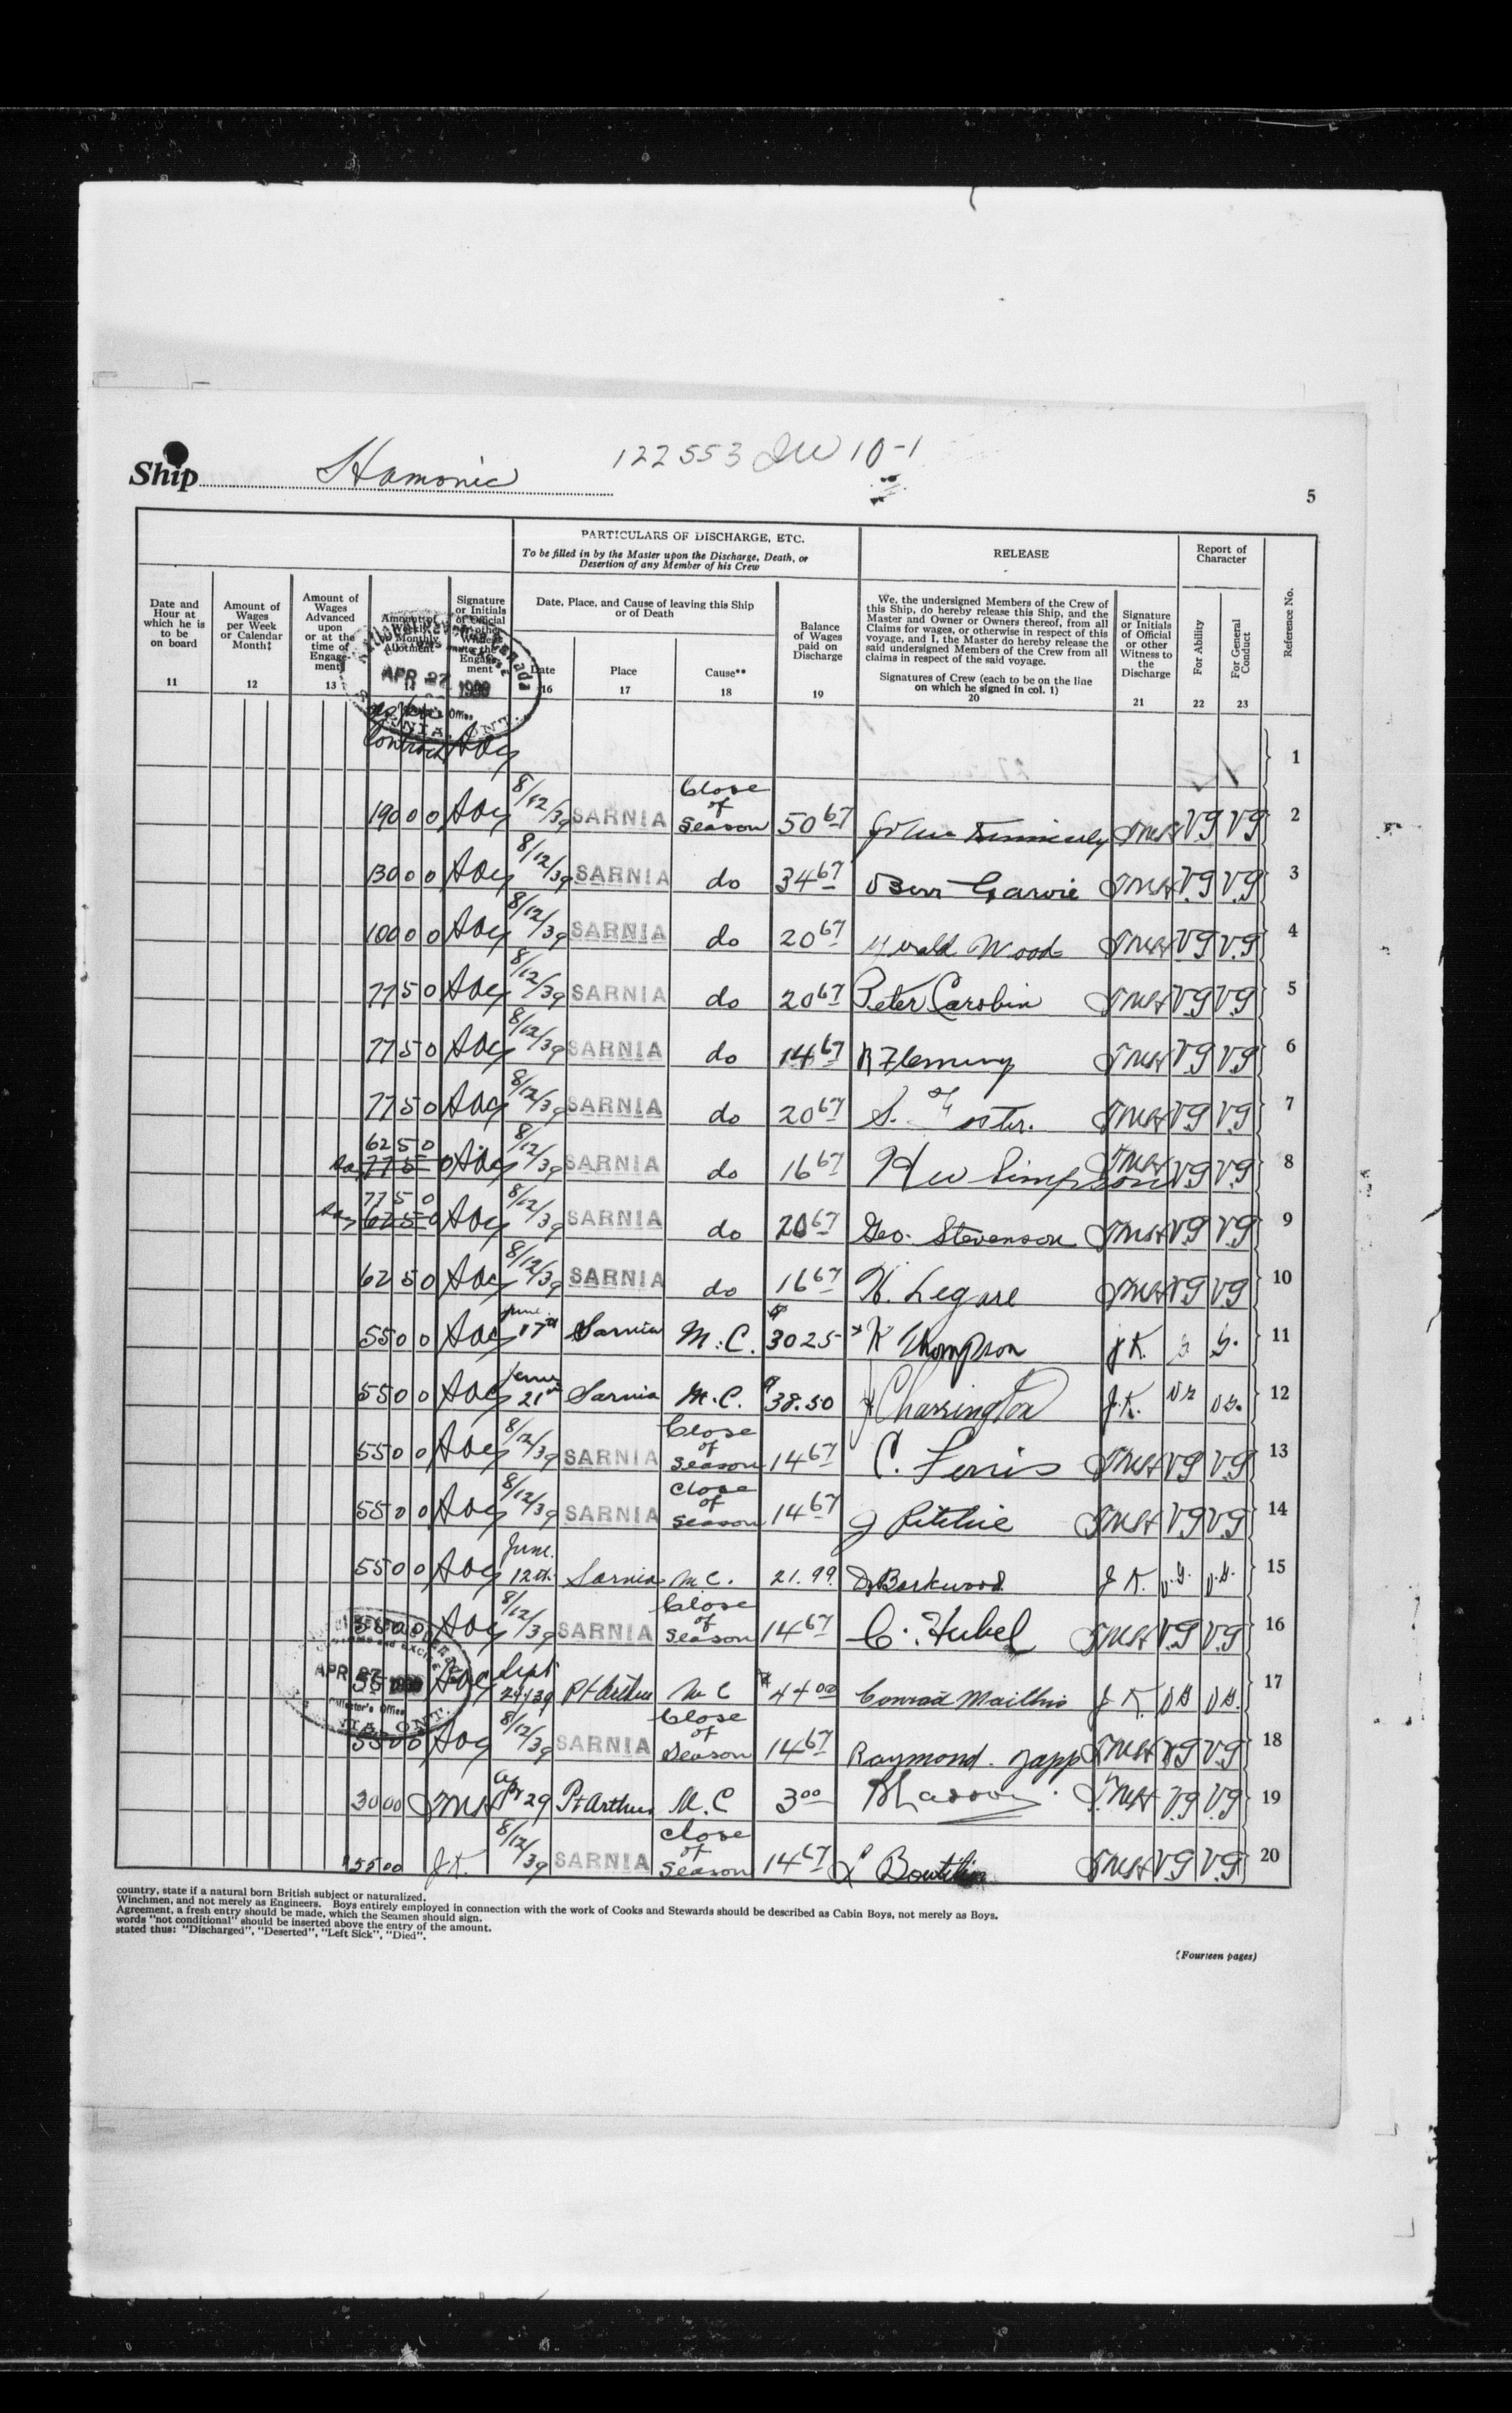 122553 JW 10-1
Ship Hamonic
5
PARTICULARS OF DISCHARGE, ETC.
To be filled in by the Master upon the Discharge, Death, or
Desertion of any Member of his Crew
RELEASE
Report of
Character
Date and
Hour at
which he is
to be
on board
11
Amount of
Wages
per Week
or Calendar
Month‡
12
Amount of
Wages
Advanced
upon
or at the
time of
Engage-
ment§
13
Amount of
Weekly
or Monthly
Allotment
14
Signature
or Initials
of Official
or other
Witness
to the
Engage-
ment
Date, Place, and Cause of leaving this Ship
or of Death
Date
16
Place
17
Cause**
18
Balance
of Wages
paid on
Discharge
19
We, the undersigned Members of the Crew of
this Ship, do hereby release this Ship, and the
Master and Owner or Owners thereof, from all
Claims for wages, or otherwise in respect of this
voyage, and I, the Master do hereby release the
said undersigned Members of the Crew from all
claims in respect of the said voyage.
Signatures of Crew (each to be on the line
on which he signed in col. 1)
20
Signature
or Initials
of Official
or other
Witness to
the
Discharge
21
For Ability
22
For General
Conduct
23
Reference No.
APR 27
Contract 1
190 00 8/12/39 SARNIA Close of Season 50 67 John VG VG 2
130 00 8/12/39 SARNIA do 34 67 Garvie VG VG 3
100 00 8/12/39 SARNIA do 20 67 Gerald Wood VG VG 4
77 50 8/12/39 SARNIA do 20 67 Peter Carobin VG VG 5
77 50 8/12/39 SARNIA do 14 67 R Fleming VG VG 6
77 50 8/12/39 SARNIA do 20 67 S. Foster. VG VG 7
62 50 77 50 8/12/39 SARNIA do 16 67 Simpson VG VG 8
77 50 62 50 8/12/39 SARNIA do 20 67 Geo. Stevenson VG VG 9
62 50 8/12/39 SARNIA do 16 67 H. Legare VG VG 10
55 00 June 17th Sarnia M.C. $30 25 K Thompson J.K. G. 11
55 00 21st Sarnia M.C. $38.50 J Charrington J.K. VG VG. 12
55 00 8/12/39 SARNIA Close of Season 14 67 C. Ferris VG VG 13
55 00 8/12/39 SARNIA Close of Season 14 67 J Ritchie VG VG 14
55 00 June. 12th Sarnia M.C. 21.99 D Barkwood J.K. V.G. V.G. 15
55 00 8/12/39 SARNIA Close of Season 14 67 C. Hubel VG VG 16
55 Sept 29/39 Pt Arthur M C $44 00 Conrad Mailhio J.K. VG VG. 17
55 00 8/12/39 SARNIA Close of Season 14 67 Raymond. Zapp VG VG 18
30 00 Apr 29 Pt Arthur M.C 3 00 VG VG 19
55 00 J.K. 8/12/39 SARNIA Close of Season 14 67 L VG VG 20
country, state if a natural born British subject or naturalized.
Winchmen, and not merely as Engineers. Boys entirely employed in connection with the work of Cooks and Stewards should be described as Cabin Boys, not merely as Boys.
Agreement, a fresh entry should be made, which the Seamen should sign.
words "not conditional" should be inserted above the entry of the amount.
stated thus: "Discharged", "Deserted", "Left Sick", "Died".
(Fourteen pages)